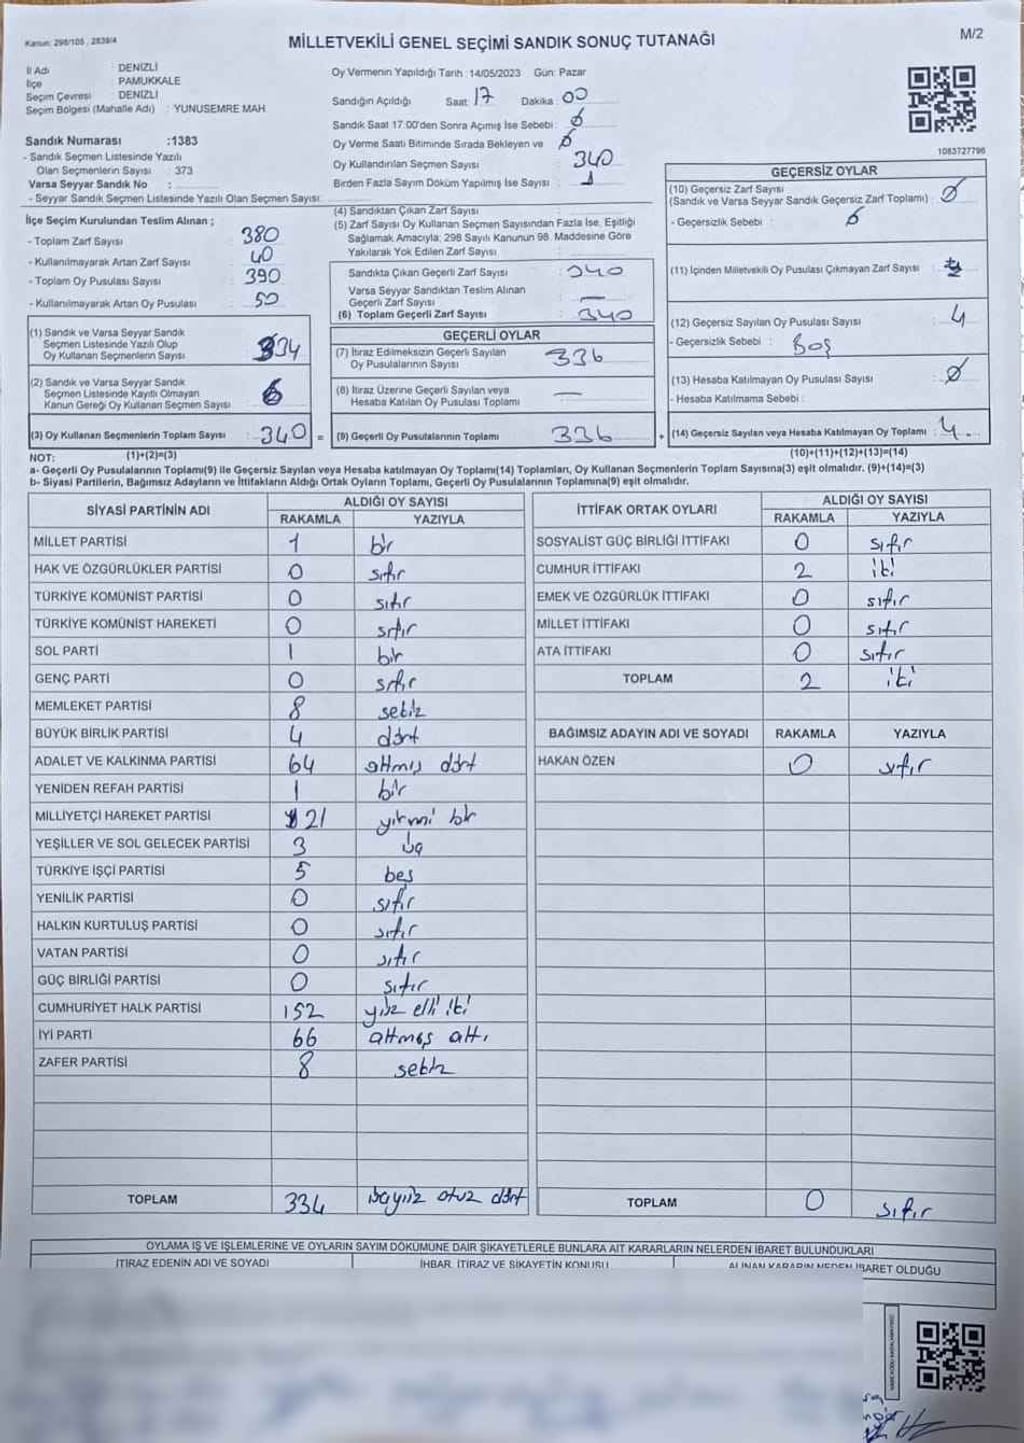 Kanun: 298/105, 2839/4
MİLLETVEKİLİ GENEL SEÇİMİ SANDIK SONUÇ TUTANAĞI
M/2
İl Adı DENİZLİ
İlçe PAMUKKALE
Seçim Çevresi DENİZLİ
Seçim Bölgesi (Mahalle Adı) : YUNUSEMRE MAH.
Sandık Numarası :1383
- Sandık Seçmen Listesinde Yazılı
Olan Seçmenlerin Sayısı : 373
Varsa Seyyar Sandık No :
- Seyyar Sandık Seçmen Listesinde Yazılı Olan Seçmen Sayısı:
Oy Vermenin Yapıldığı Tarih :14/05/2023 Gün: Pazar
Sandığın Açıldığı Saat : 17 Dakika : 00
Sandık Saat 17:00'den Sonra Açımış İse Sebebi : Ø
Oy Verme Saati Bitiminde Sırada Bekleyen ve Ø
Oy Kullandırılan Seçmen Sayısı 340
Birden Fazla Sayım Döküm Yapılmış İse Sayısı : 1
1083727796
İlçe Seçim Kurulundan Teslim Alınan ;
- Toplam Zarf Sayısı 380
- Kullanılmayarak Artan Zarf Sayısı 40
- Toplam Oy Pusulası Sayısı 390
- Kullanılmayarak Artan Oy Pusulası 50
(1) Sandık ve Varsa Seyyar Sandık
Seçmen Listesinde Yazılı Olup
Oy Kullanan Seçmenlerin Sayısı 334
(2) Sandık ve Varsa Seyyar Sandık
Seçmen Listesinde Kayıtlı Olmayan
Kanun Gereği Oy Kullanan Seçmen Sayısı 6
(3) Oy Kullanan Seçmenlerin Toplam Sayısı : 340 =
(4) Sandıktan Çıkan Zarf Sayısı :
(5) Zarf Sayısı Oy Kullanan Seçmen Sayısından Fazla İse, Eşitliği
Sağlamak Amacıyla; 298 Sayılı Kanunun 98. Maddesine Göre
Yakılarak Yok Edilen Zarf Sayısı :
Sandıkta Çıkan Geçerli Zarf Sayısı : 340
Varsa Seyyar Sandıktan Teslim Alınan
Geçerli Zarf Sayısı : —
(6) Toplam Geçerli Zarf Sayısı : 340
GEÇERLİ OYLAR
(7) İtiraz Edilmeksizin Geçerli Sayılan
Oy Pusulalarının Sayısı : 336
(8) İtiraz Üzerine Geçerli Sayılan veya
Hesaba Katılan Oy Pusulası Toplamı : —
(9) Geçerli Oy Pusulalarının Toplamı : 336 +
GEÇERSİZ OYLAR
(10) Geçersiz Zarf Sayısı
(Sandık ve Varsa Seyyar Sandık Geçersiz Zarf Toplamı) : Ø
- Geçersizlik Sebebi : Ø
(11) İçinden Milletvekili Oy Pusulası Çıkmayan Zarf Sayısı :
(12) Geçersiz Sayılan Oy Pusulası Sayısı : 4
- Geçersizlik Sebebi : Boş
(13) Hesaba Katılmayan Oy Pusulası Sayısı : Ø
- Hesaba Katılmama Sebebi :
(14) Geçersiz Sayılan veya Hesaba Katılmayan Oy Toplamı : 4.
NOT: (1)+(2)=(3)
(10)+(11)+(12)+(13)=(14)
a- Geçerli Oy Pusulalarının Toplamı(9) ile Geçersiz Sayılan veya Hesaba katılmayan Oy Toplamı(14) Toplamları, Oy Kullanan Seçmenlerin Toplam Sayısına(3) eşit olmalıdır. (9)+(14)=(3)
b- Siyasi Partilerin, Bağımsız Adayların ve İttifakların Aldığı Ortak Oyların Toplamı, Geçerli Oy Pusulalarının Toplamına(9) eşit olmalıdır.
SİYASİ PARTİNİN ADI ALDIĞI OY SAYISI
RAKAMLA YAZIYLA
MİLLET PARTİSİ 1 bir
HAK VE ÖZGÜRLÜKLER PARTİSİ 0 sıfır
TÜRKİYE KOMÜNİST PARTİSİ 0 sıfır
TÜRKİYE KOMÜNİST HAREKETİ 0 sıfır
SOL PARTİ 1 bir
GENÇ PARTİ 0 sıfır
MEMLEKET PARTİSİ 8 sekiz
BÜYÜK BİRLİK PARTİSİ 4 dört
ADALET VE KALKINMA PARTİSİ 64 altmış dört
YENİDEN REFAH PARTİSİ 1 bir
MİLLİYETÇİ HAREKET PARTİSİ 21 yirmi bir
YEŞİLLER VE SOL GELECEK PARTİSİ 3 üç
TÜRKİYE İŞÇİ PARTİSİ 5 beş
YENİLİK PARTİSİ 0 sıfır
HALKIN KURTULUŞ PARTİSİ 0 sıfır
VATAN PARTİSİ 0 sıfır
GÜÇ BİRLİĞİ PARTİSİ 0 sıfır
CUMHURİYET HALK PARTİSİ 152 yüz elli iki
İYİ PARTİ 66 altmış altı
ZAFER PARTİSİ 8 sekiz
TOPLAM 334 üçyüz otuz dört
İTTİFAK ORTAK OYLARI ALDIĞI OY SAYISI
RAKAMLA YAZIYLA
SOSYALİST GÜÇ BİRLİĞİ İTTİFAKI 0 sıfır
CUMHUR İTTİFAKI 2 iki
EMEK VE ÖZGÜRLÜK İTTİFAKI 0 sıfır
MİLLET İTTİFAKI 0 sıfır
ATA İTTİFAKI 0 sıfır
TOPLAM 2 iki
BAĞIMSIZ ADAYIN ADI VE SOYADI RAKAMLA YAZIYLA
HAKAN ÖZEN 0 sıfır
TOPLAM 0 sıfır
OYLAMA İŞ VE İŞLEMLERİNE VE OYLARIN SAYIM DÖKÜMÜNE DAİR ŞİKAYETLERLE BUNLARA AİT KARARLARIN NELERDEN İBARET BULUNDUKLARI
İTİRAZ EDENİN ADI VE SOYADI İHBAR, İTİRAZ VE ŞİKAYETİN KONUSU ALINAN KARARIN NEDEN İBARET OLDUĞU